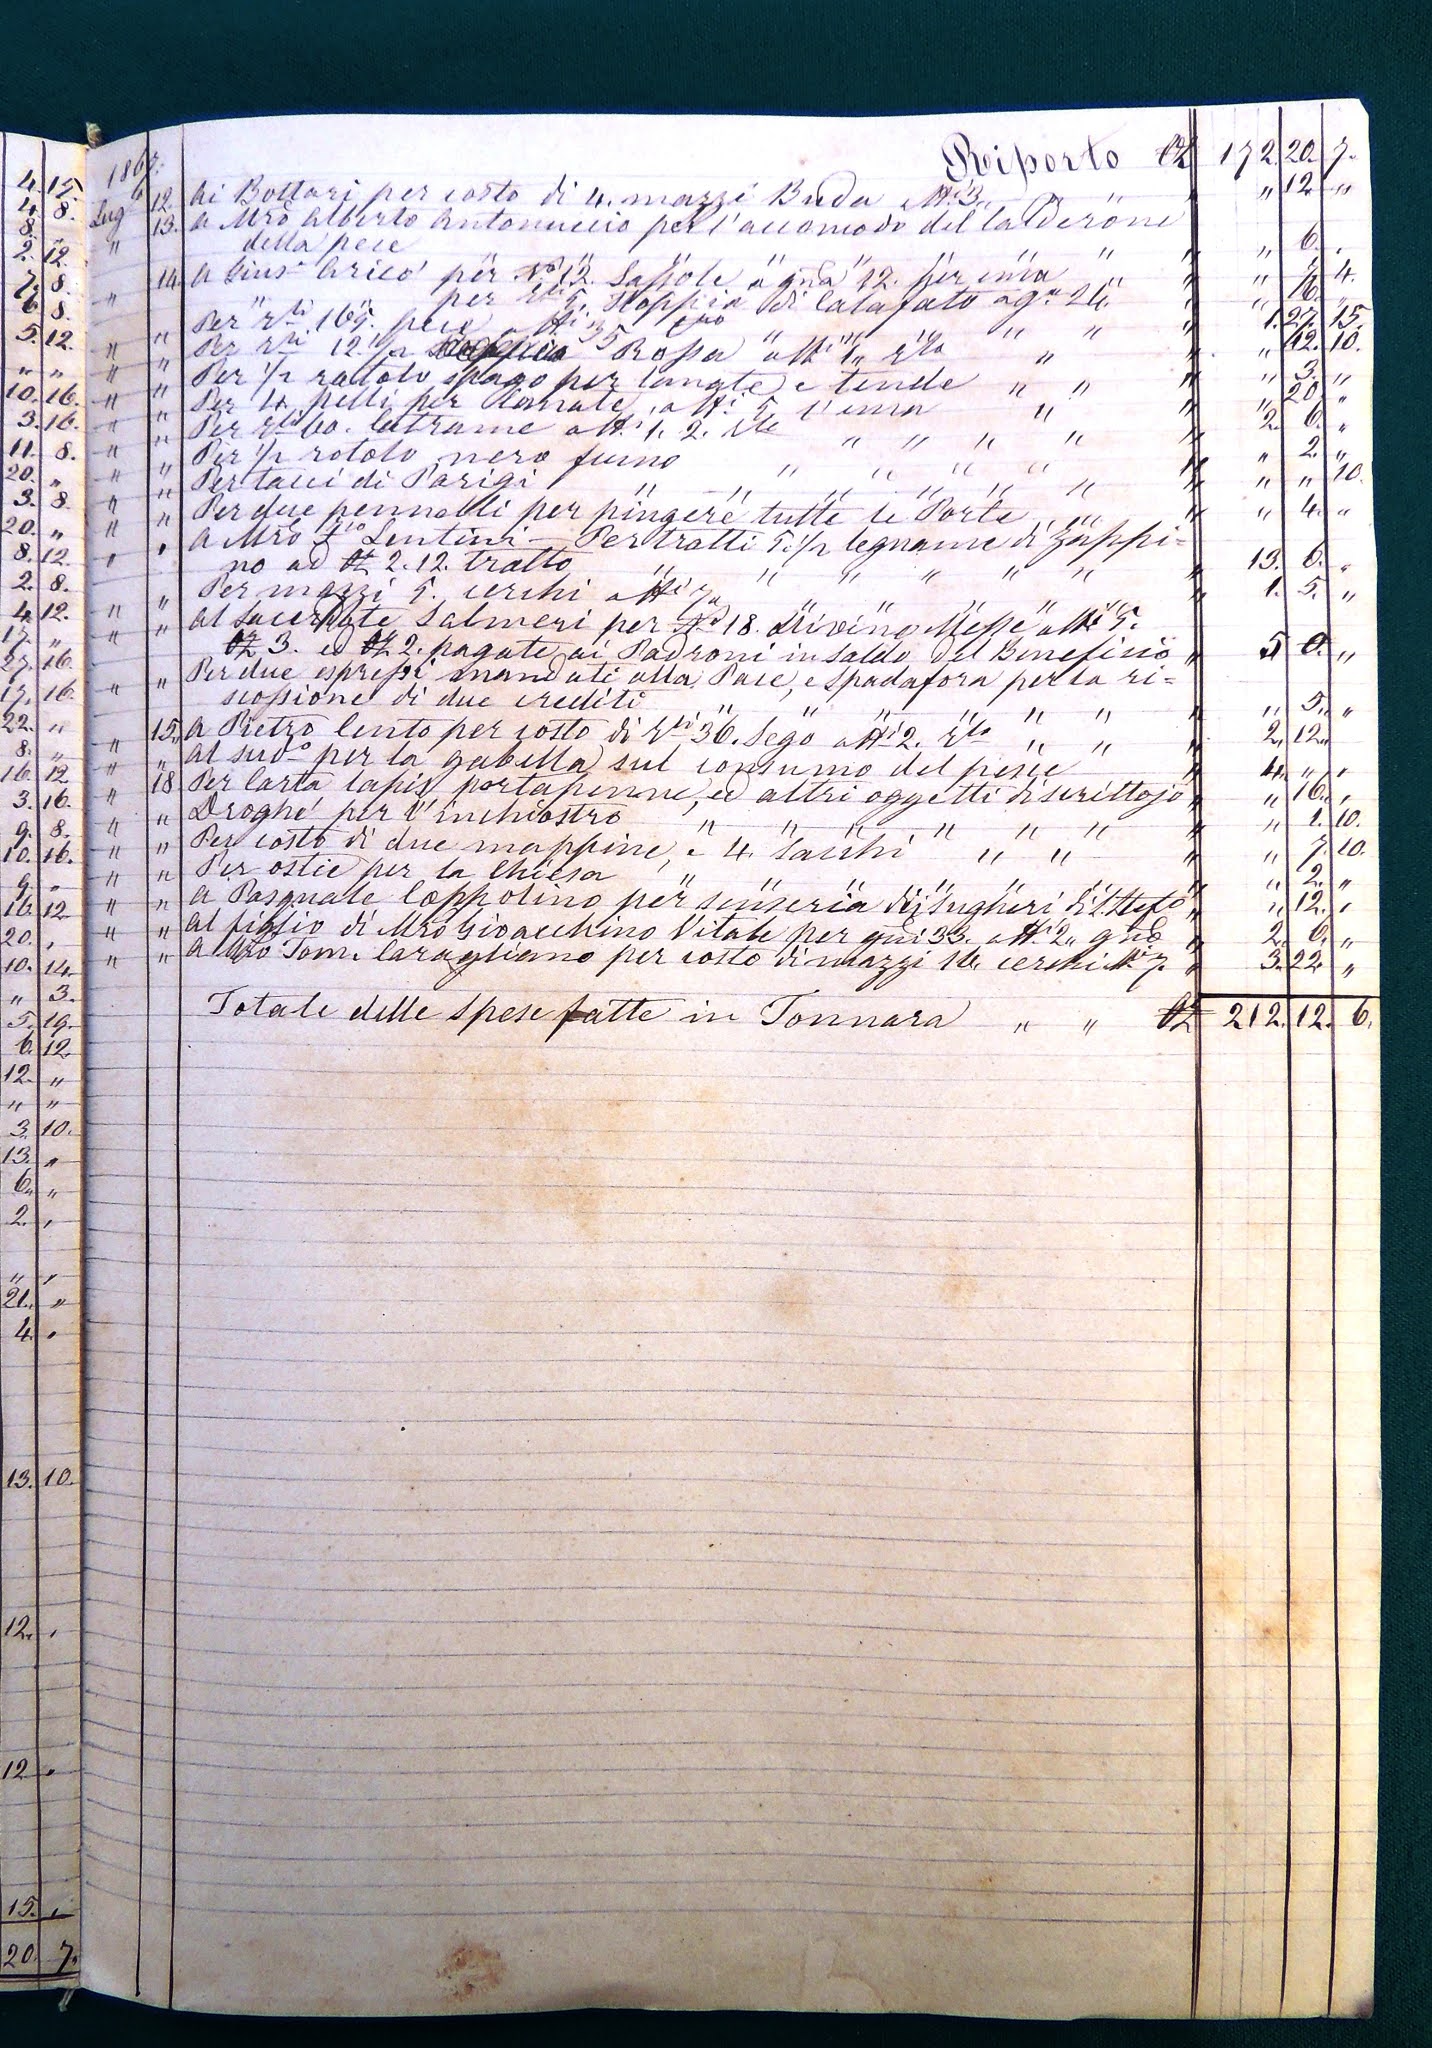 1867.
Riporto Oz 172. 20. 7.
Lug° 12. Ai Bottari per costo di 4. mazzi Buda a tt: 3 " " 12 "
" 13. a Mro Alberto Antonuccio per l'accomodo del Calderone
della pece " 6. "
" 14. a Gius.e Aricò per N° 12. " a gna 12. per una " " 4.
per rli 5. Stoppia di Calafato a gna 24. " 6. "
" " Per rli 165. pece 1. 27. 15.
" " Per rli 12 1/2 Rossa 12. 10.
" " Per 1/2 rotolo spago per lanate e tende " " " 3. "
" " Per 4. pelli per lanate, a tt: 5 l'una " " 20. "
" " Per rli 60. Catrame a tt: 1. 2. rlo 2. 6. "
" " Per 1/2 rotolo nero fumo " 2. "
" " Per tacci di Parigi " " 10.
" " Per due pennelli per pingere tutte le Porte " 4. "
" " a Mro Lentini - Per tratti 5 1/2 legname di Zappi=
no ad Oz 2. 12. tratto 13. 6. "
" " Per mazzi 5. cerchi a tt: 7 1. 5. "
" " al Sacerdote Salmeri per N° 18. Divine Messe a tt: 5.
Oz 3. ed Oz 2. pagate ai Padroni in saldo del Beneficio 5 0. "
" " Per due espressi mandati alla Pace, e Spadafora per la ri=
scossione di due crediti " 5. "
" 15. a Pietro Cento per costo di rli 36. Sego a tt: 2. rlo 2. 12. "
" " al sud.° per la gabella sul consumo del pesce 4. " "
" 18 Per Carta lapis portapenne, ed altri oggetti di scrittojo " 16. "
" " Droghe per l'inchiostro " 1. 10.
" " Per costo di due mappine, e 4. Sacchi " 7. 10.
" " Per ostie per la Chiesa " 2. "
" " a Pasquale Coppolino per senseria di Sugheri di S. Stef.° " 12. "
" " al figlio di Mro Gioacchino Vitale per gni 33. a tt: 2 2. 6. "
" " a Mro Tom. Caragliano per costo di mazzi 16. cerchi tt: 7. 3. 22. "
Totale delle spese fatte in Tonnara " " Oz 212. 12. 6.
4. 15.
4. 8.
8. "
2. 12.
7. 8.
6. 8.
5. 12.
" "
10. 16.
3. 16.
11. 8.
20. "
3. 8.
20. "
8. 12.
2. 8.
4. 12.
17. "
27. 16.
17. 16.
22. "
8. "
16. 12
3. 16.
9. 8.
10. 16.
9. "
16. 12
20. "
10. 14.
" 3.
5. 19.
6. 12.
12. "
" "
3. 10.
13. "
6. "
2. "
" "
21. "
4. "
13. 10.
12. "
12 "
15. "
20. 7.